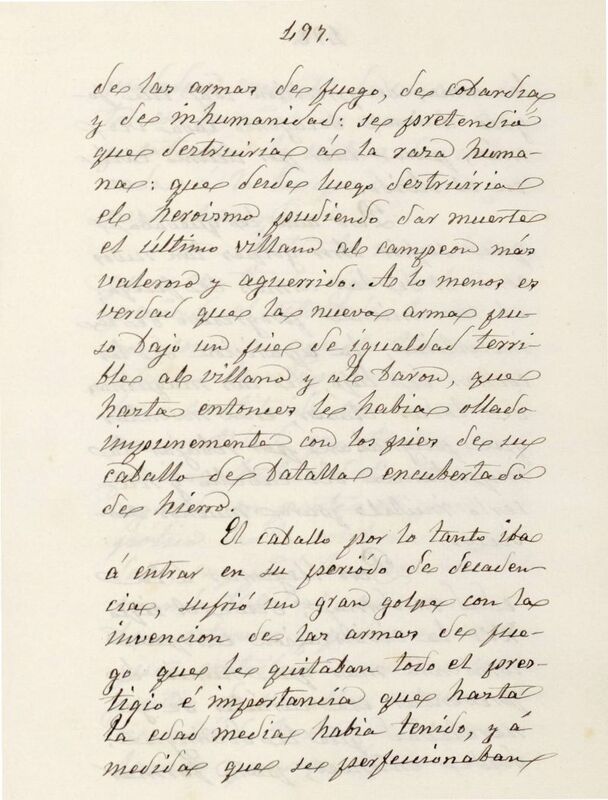 197.
de las armas de fuego, de cobardia
y de inhumanidad: se pretendia
que destruiria á la raza huma-
na: que desde luego destruiria
el heroismo pudiendo dar muerte
el último villano al campeon más
valeroso y aguerrido. A lo menos es
verdad que la nueva arma pu-
so bajo un pie de igualdad terri-
ble al villano y al baron, que
hasta entonces le habia ollado
impunemente con los pies de su
caballo de batalla encubertado
de hierro.
El caballo por lo tanto iba
á entrar en su periódo de decaden-
cia, sufrió un gran golpe con la
invencion de las armas de fue-
go que le quitaban todo el pres-
tigio é importancia que hasta
la edad media habia tenido, y á
medida que se perfeccionaban